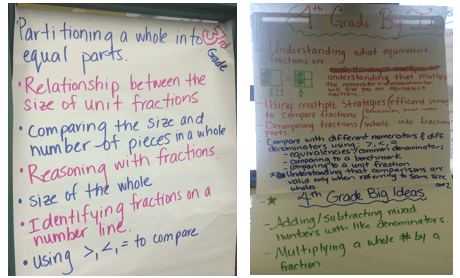 Partitioning a whole into
equal parts.
3rd
Grade
• Relationship between the
size of unit fractions
• Comparing the size and
number of pieces in a whole
• Reasoning with fractions
• size of the whole
• Identifying fractions on a
number line.
• using >, <, = to compare
4th Grade Big
• Understanding what equivalent
fractions are
- understanding that
the numerator + denominator
will give you an equivalent
fraction.
• Using multiple strategies (efficient
to compare fractions
• Decomposing fractions/whole into fraction
parts
• Compare with different numerators & diff.
denominators using >, <, =
- equivalencies/common denominators
- comparing to a benchmark
- comparing to a unit fraction
Understanding that comparisons are
valid only when referring to same size
wholes.
4th Grade Big Ideas
- Adding/Subtracting mixed
numbers with like denominators.
- Multiplying a whole # by a
fraction